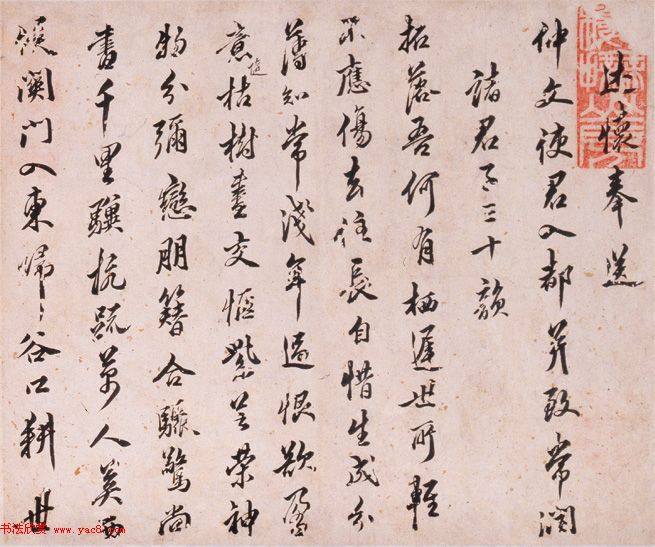 述懷奉送
仲文使君入都并致常閥
諸君子三十韻
拓落吾何有栖遲世所輕
只應傷去住長自惜生成分
薄知常淺年過恨欲盈
意枯樹盡交愜紫芝榮神
物分彌戀朋簪合驟驚尚
書千里驥抗疏萬人英
關門入東歸谷口耕
书法欣赏 www.yac8.com